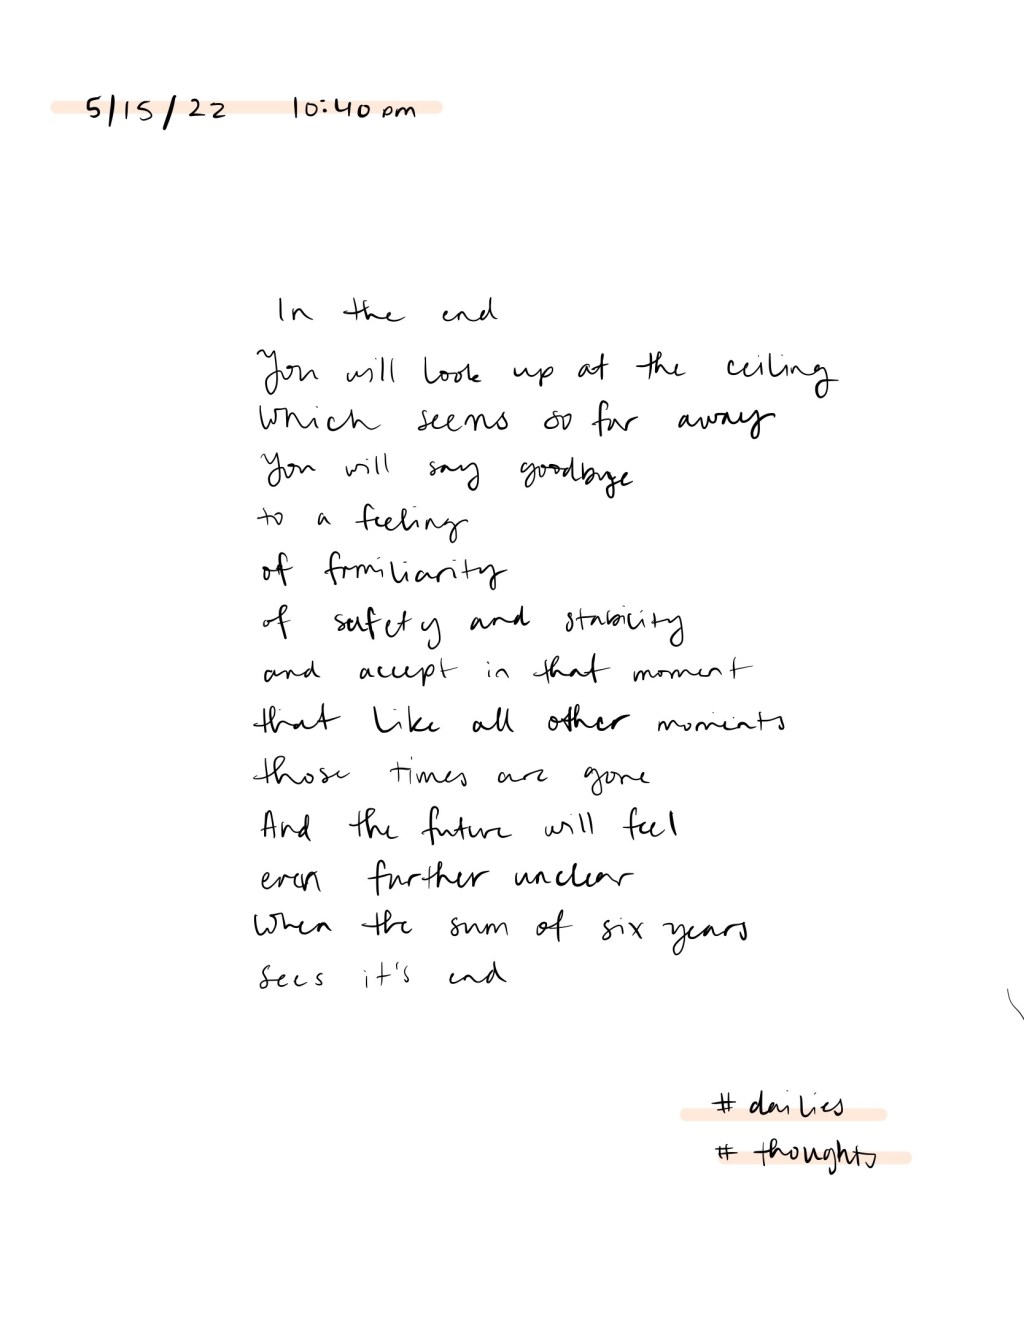 5/15/22 10:40 pm
In the end
You will look up at the ceiling
which seems so far away
You will say goodbye
to a feeling
of familiarity
of safety and stability
and accept in that moment
that like all other moments
those times are gone
And the future will feel
even further unclear
When the sum of six years
sees it's end
# dailies
# thoughts